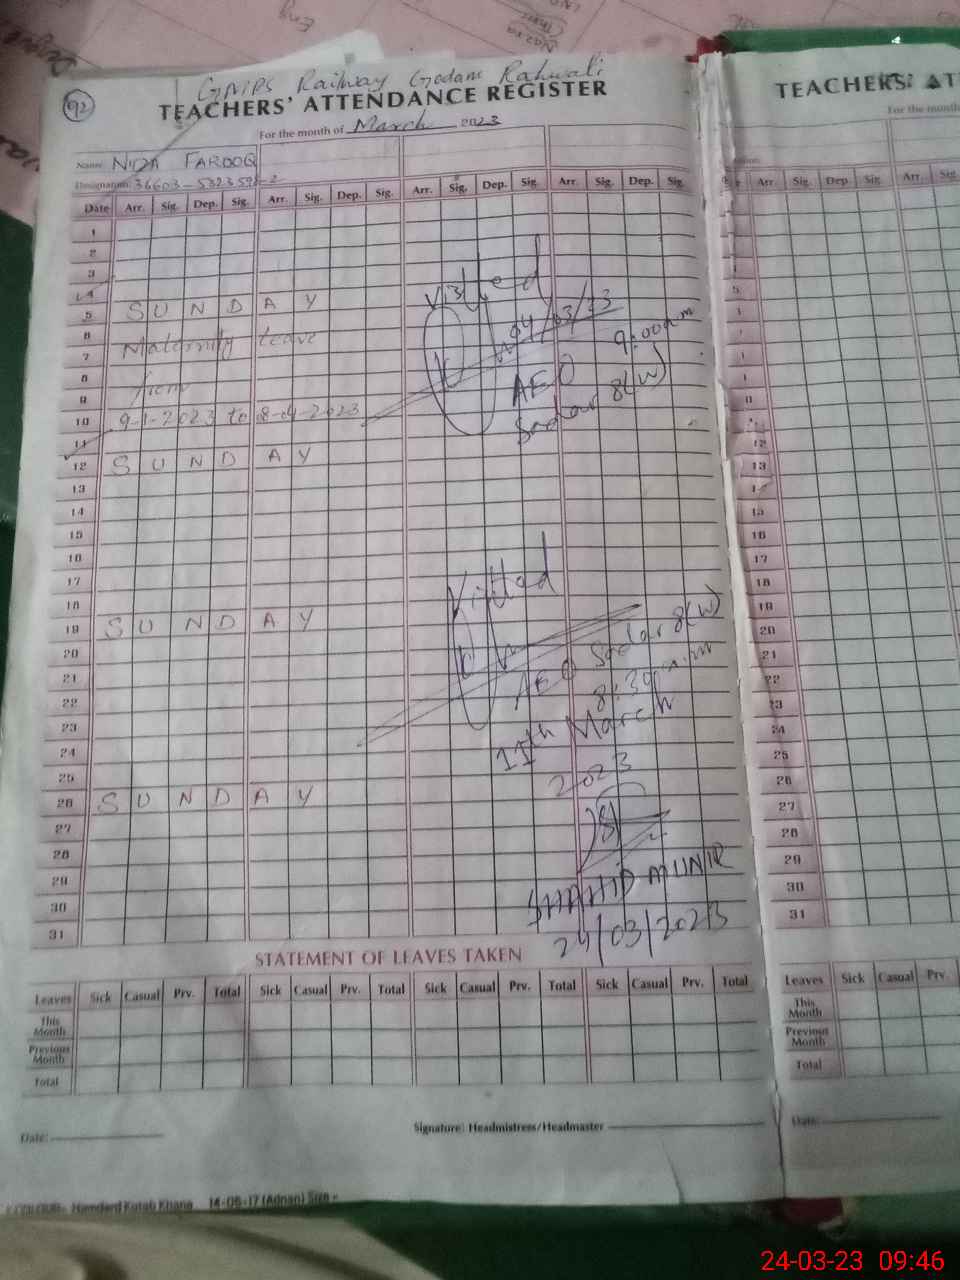 GMPS Railway Godam Rahwali
92
TEACHERS' ATTENDANCE REGISTER
For the month of March 2023
Name: NIDA FAROOQ
Designation:
Date Arr. Sig. Dep. Sig. Arr. Sig. Dep. Sig. Arr. Sig. Dep. Sig. Arr. Sig. Dep. Sig.
1
2
3
4
5 SUNDAY
6
7 Maternity leave
8
9 from
10 9-1-2023 to
11
12 SUNDAY
13
14
15
16
17
18
19 SUNDAY
20
21
22
23
24
25
26 SUNDAY
27
28
29
30
31
Visited
04/03/23
9:00am
AEO
Sadar 8(W)
Visited
AEO Sadar 8(W)
8:30 a.m
11th March
2023
SHAHID MUNIR
24/03/2023
STATEMENT OF LEAVES TAKEN
Leaves Sick Casual Prv. Total Sick Casual Prv. Total Sick Casual Prv. Total Sick Casual Prv. Total
This Month
Previous Month
Total
Date:
Signature: Headmistress/Headmaster
Hamdard Kutab Khana 14-06-17 (Adnan) Size -
TEACHERS' AT
For the month
Arr. Sig. Dep. Sig. Arr. Sig.
12
13
15
16
17
18
19
20
21
22
23
24
25
26
27
28
29
30
31
Leaves Sick Casual Prv.
This Month
Previous Month
Total
Date:
24-03-23 09:46